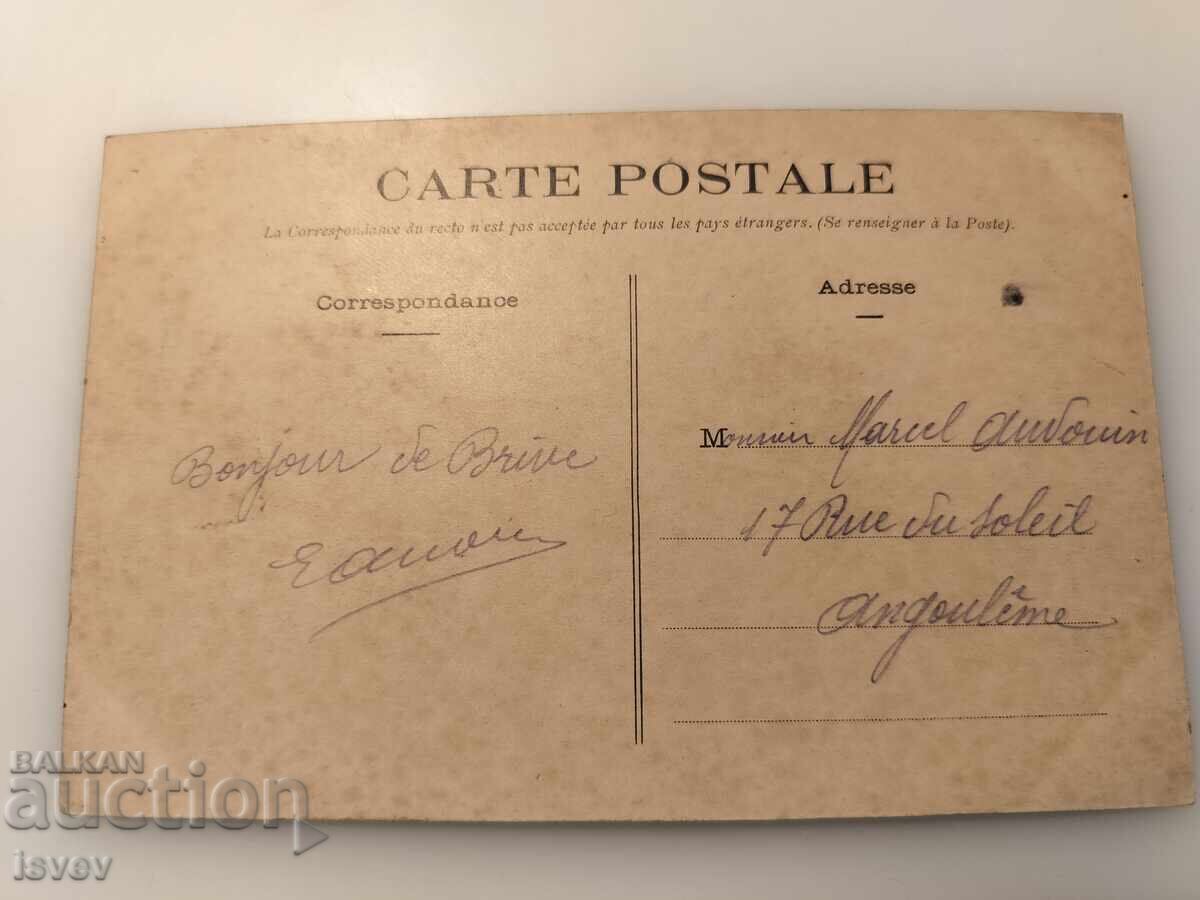 CARTE POSTALE
La Correspondance du recto n'est pas acceptée par tous les pays étrangers. (Se renseigner à la Poste).
Correspondance
Bonjour de Brive
Adresse
Monsieur Marcel Audouin
17 Rue du Soleil
Angoulême
BALKAN
auction
isvev